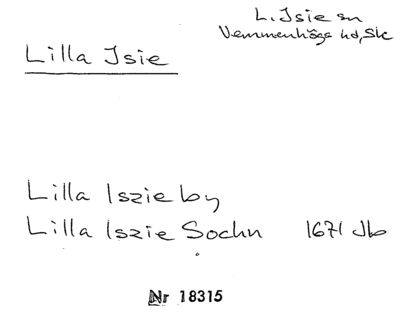 L. Isie sn
Vemmenhögs hd, Sk
Lilla Isie
Lilla Iszie by
Lilla Iszie Sochn 1671 Jb
Nr 18315